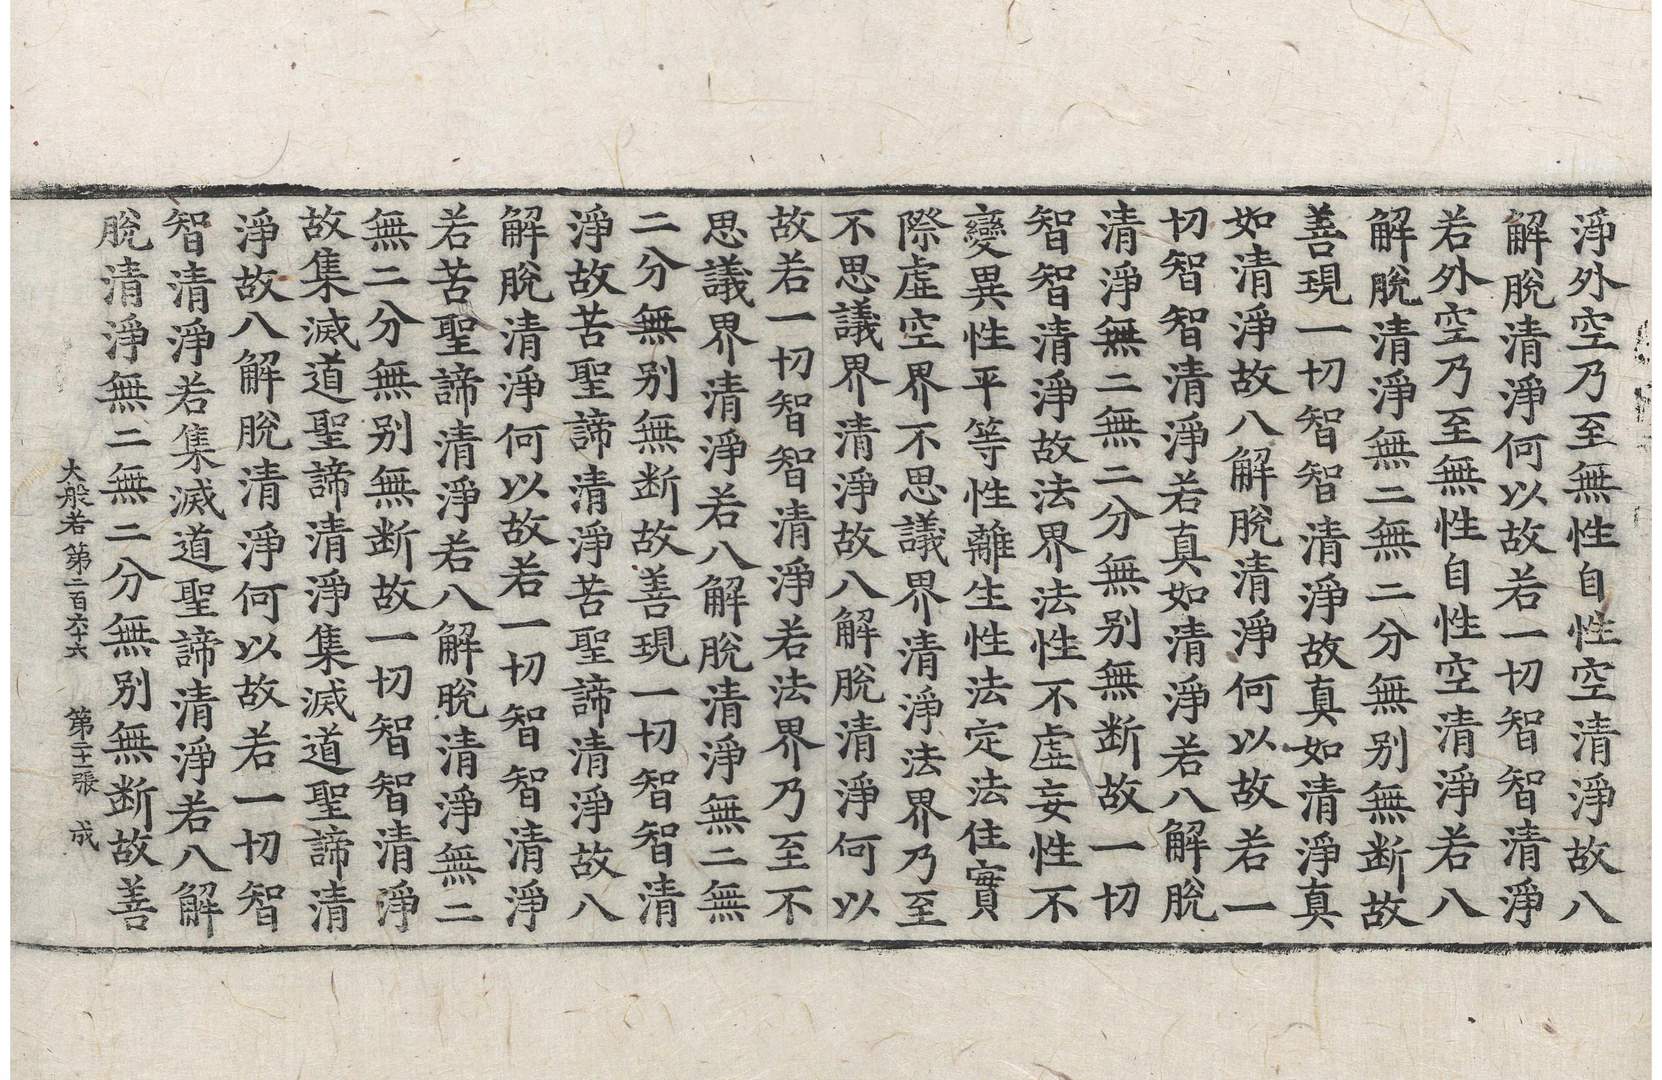 淨外空乃至無性自性空清淨故八
解脫清淨何以故若一切智智清淨
若外空乃至無性自性空清淨若八
解脫清淨無二無二分無別無断故
善現一切智智清淨故真如清淨真
如清淨故八解脫清淨何以故若一
切智智清淨若真如清淨若八解脫
清淨無二無二分無別無断故一切
智智清淨故法界法性不虛妄性不
變異性平等性離生性法定法住實
際虛空界不思議界清淨法界乃至
不思議界清淨故八解脫清淨何以
故若一切智智清淨若法界乃至不
思議界清淨若八解脫清淨無二無
二分無別無断故善現一切智智清
淨故苦聖諦清淨苦聖諦清淨故八
解脫清淨何以故若一切智智清淨
若苦聖諦清淨若八解脫清淨無二
無二分無別無断故一切智智清淨
故集滅道聖諦清淨集滅道聖諦清
淨故八解脫清淨何以故若一切智
智清淨若集滅道聖諦清淨若八解
脫清淨無二無二分無別無断故善
大般若第二百六十六 第二十張 成